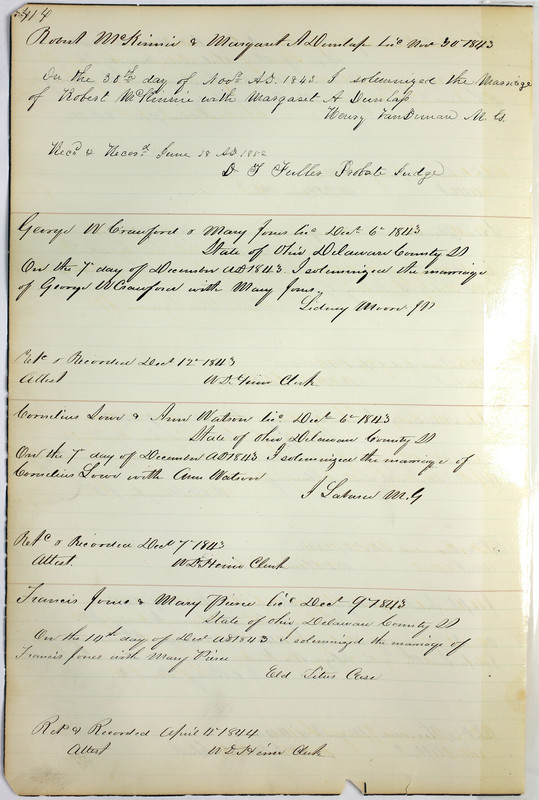 414
Robert McKinnie & Margaret A Dunlap Lic Nov 30th 1843
On the 30th day of Novr AD. 1843 I solemnized the Marriage
of Robert McKinnie with Margaret A Dunlap
Henry VanDeman M. G.
Recd & Record June 18 AD 1852
D T Fuller Probate Judge
George W Crawford & Mary Jones Lic Dect 6th 1843
State of Ohio Delaware County SS
On the 7th day of December AD 1843. I solemnized the marriage
of George W Crawford with Mary Jones.,
Sidney Moore JP
Retd & Recorded Dect 12th 1843
Attest W D Heim Clerk
Cornelius Lowe & Ann Watson Lic. Dect 6th 1843
State of Ohio Delaware County SS
On the 7th day of December AD 1843 I solemnized the marriage of
Cornelius Lowe with Ann Watson
M. G
Retd & Recorded Dect 7th 1843
Attest. W D Heim Clerk
Francis Jones & Mary Pierce Lic Dect 9th 1843
State of Ohio, Delaware County SS
On the 10th day of Dect AD 1843 I solemnized the marriage of
Francis Jones with Mary Pierce
Eld Titus Case
Retd & Recorded April 4th 1844
Attest W D Heim Clerk